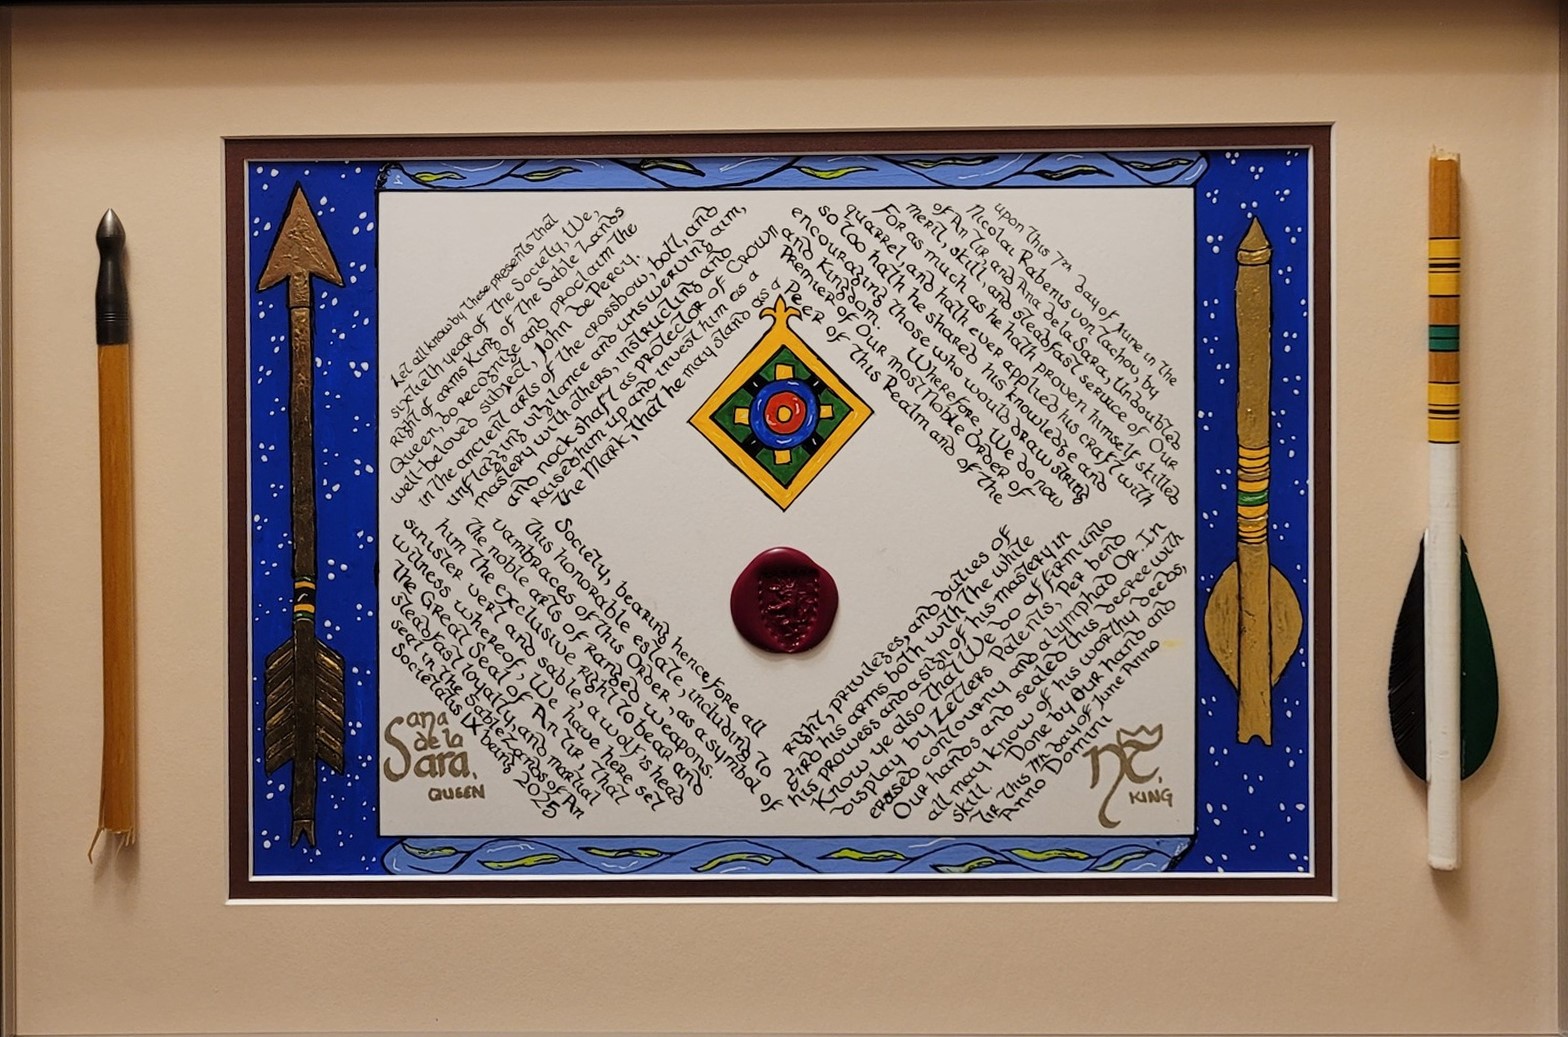 Let all know by these presents that upon this 7th day of June in the
sixtieth year of the Society, We, Nicolar Radenis von Tachov, by
Right of arms King of the Sable Lands of An Tir and Ana de la Sara Undoubted
Queen, do recognize and proclaim the merit, skill and steadfast service of Our
well beloved subject, John de Percy, For as much as he hath proven himself skilled
in the ancient arts of the crossbow, bolt, and quarrel, and hath ever applied his craft with
unflagging vigilance and unswerving aim, so too hath he shared his knowledge and
mastery with others, instructing and encouraging those who would draw string
and nock shaft as protector of Crown and Kingdom. Wherefore We do now
raise him up and invest him as a of Our most Noble Order of
the Mark, that he may stand as a Peer of this Realm and of the
Society, bearing hence for all right, privileges, and duties of
this honorable estate, including to gird his arms both with the white
cumbraces of the Order, as a symbol of his prowess and sign of his mastery in
the noble arts of ranged weapons. Know ye also that We do affirm unto
him the exclusive right to bear and display by Letters Patents, Per bend
sinister vert and sable, a wolf's head erased contourny and a lymphad Or. In
Witness whereof, We have here set Our hands and sealed this decree with
the Great Seal of An Tir that all may know of his worthy deeds,
steadfast loyalty and martial skill. Done by Our hand and
this 7th day of June Anno
Societatis LX Anno Domini
2025
Sana
de la
Sara,
QUEEN
KING